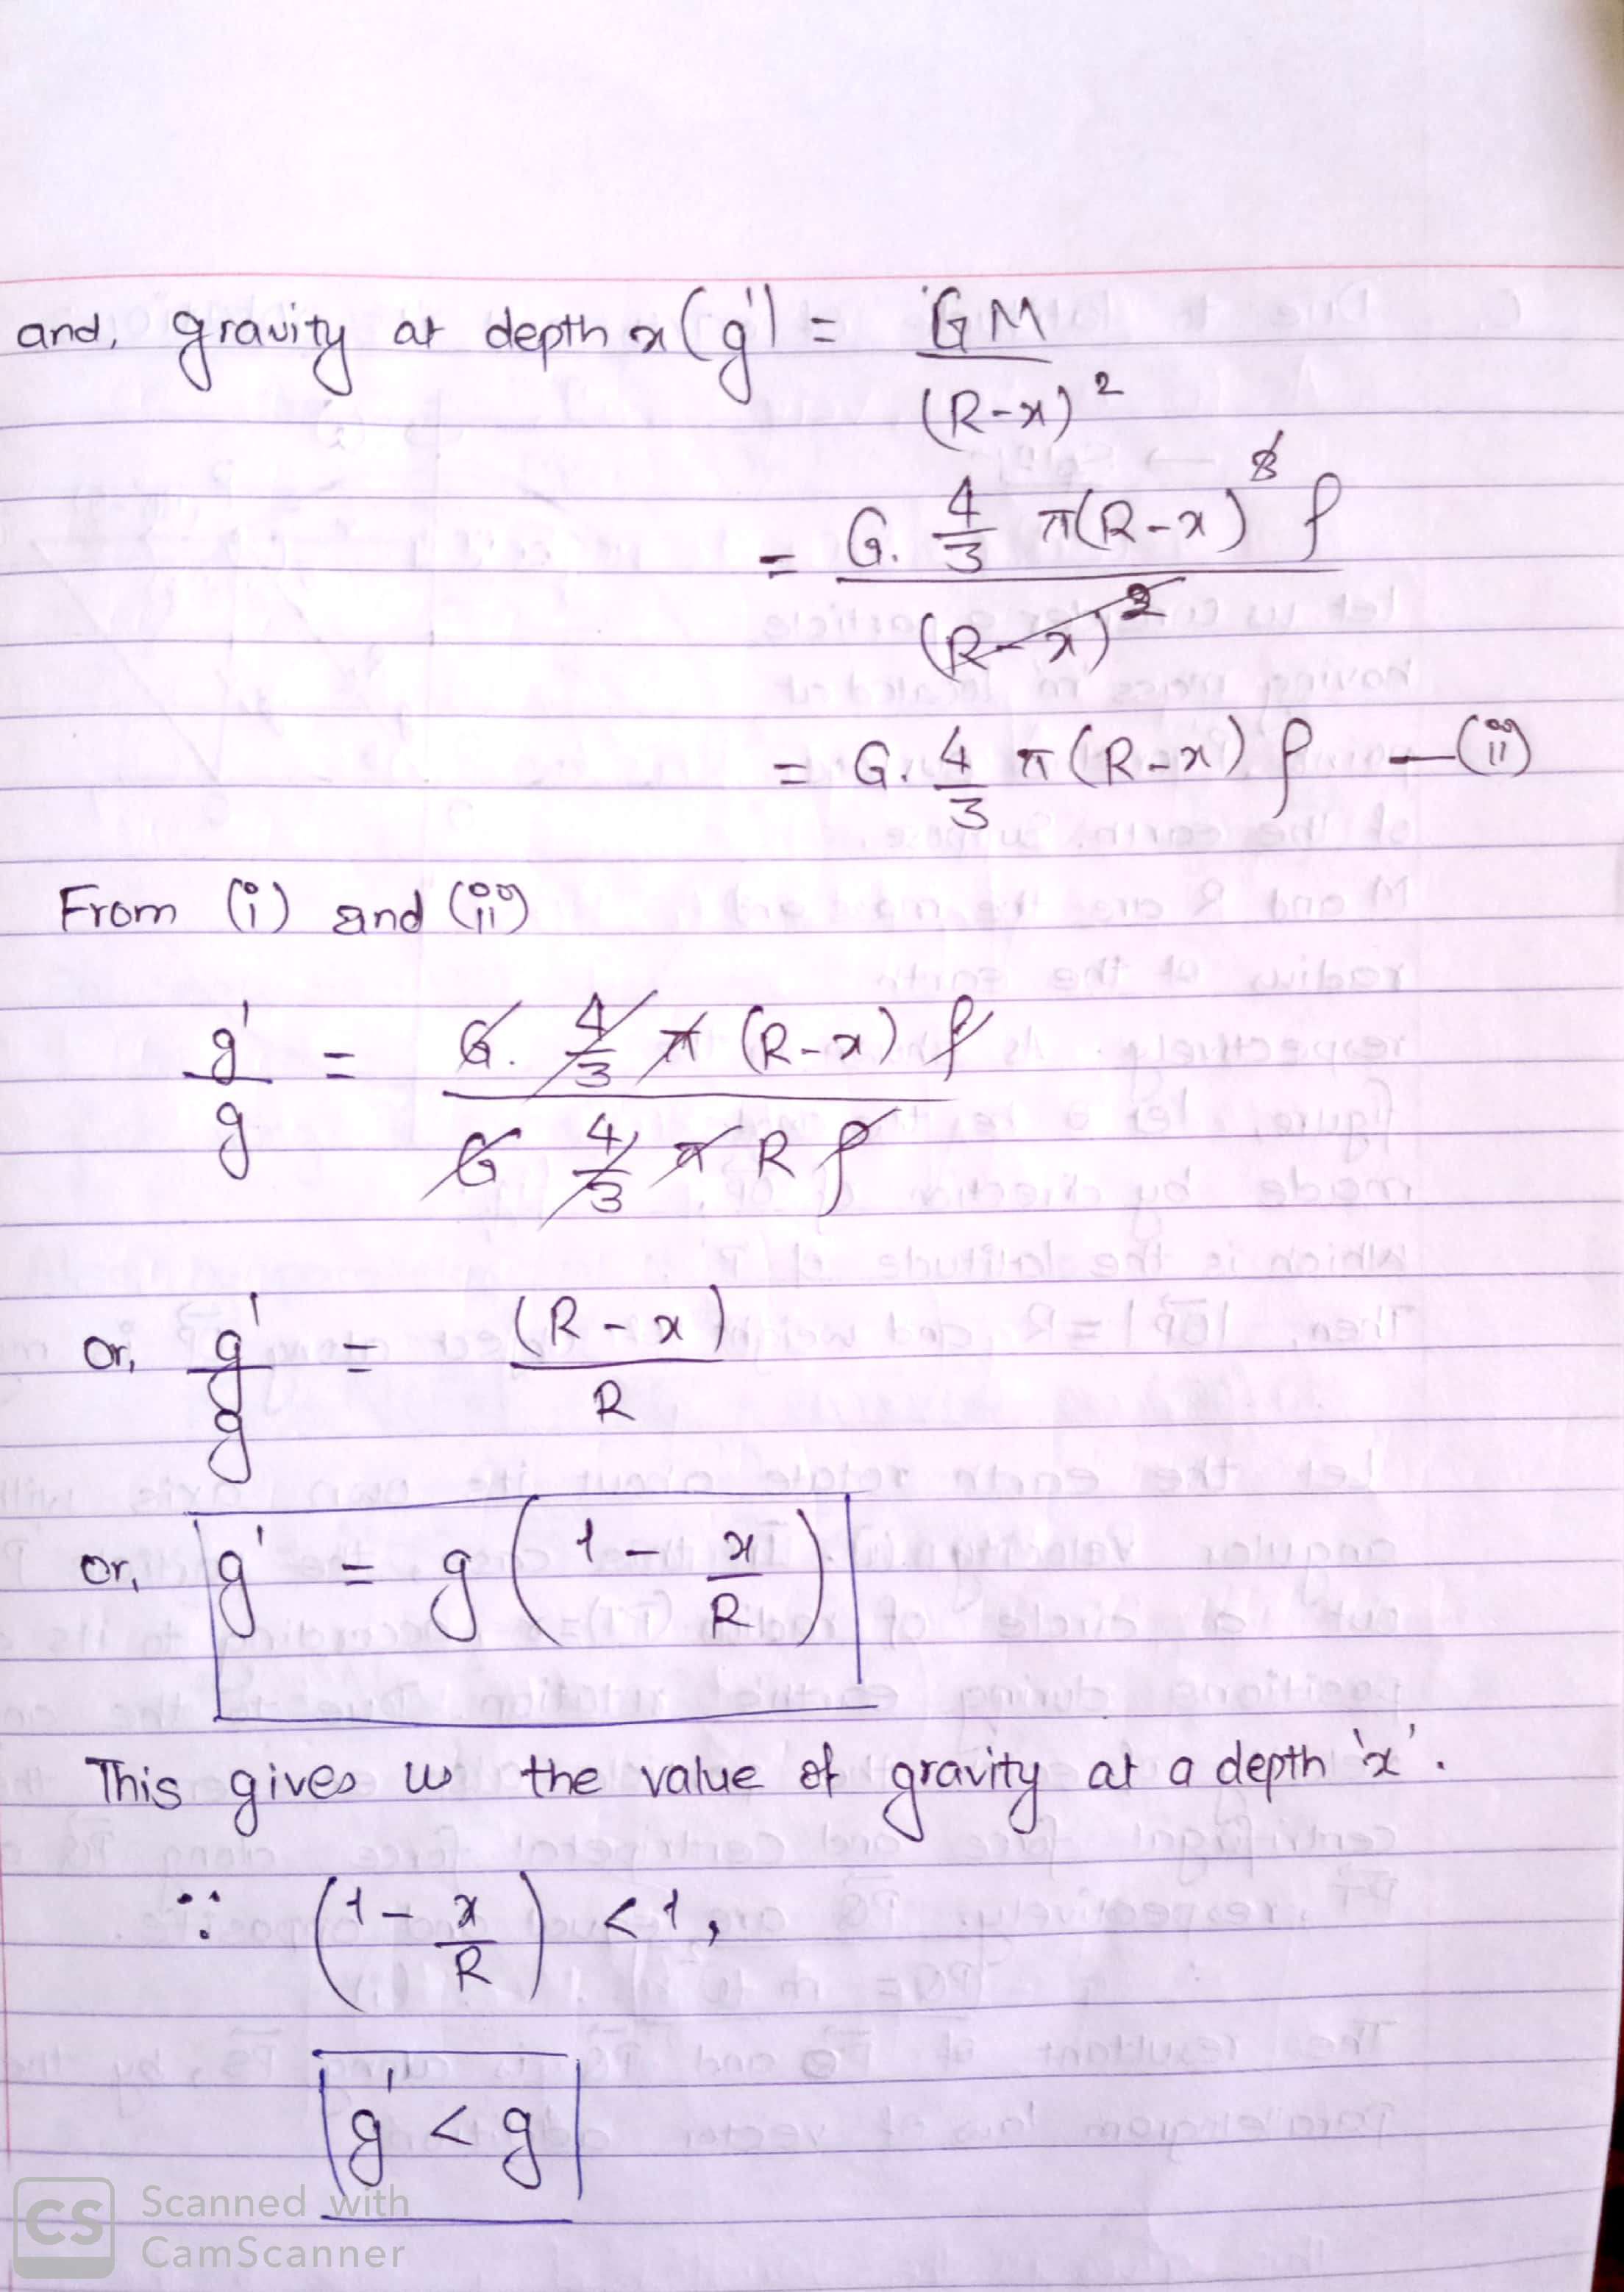 and, gravity at depth x (g') = GM / (R-x)²
= G. 4/3 π(R-x)³ ρ / (R-x)²
= G. 4/3 π(R-x) ρ —(ii)
From (i) and (ii)
g'/g = G. 4/3 π (R-x) ρ / G 4/3 π R ρ
or, g'/g = (R-x)/R
or, g' = g (1 - x/R)
This gives us the value of gravity at a depth 'x'.
∵ (1 - x/R) < 1,
g' < g
CS Scanned with
CamScanner